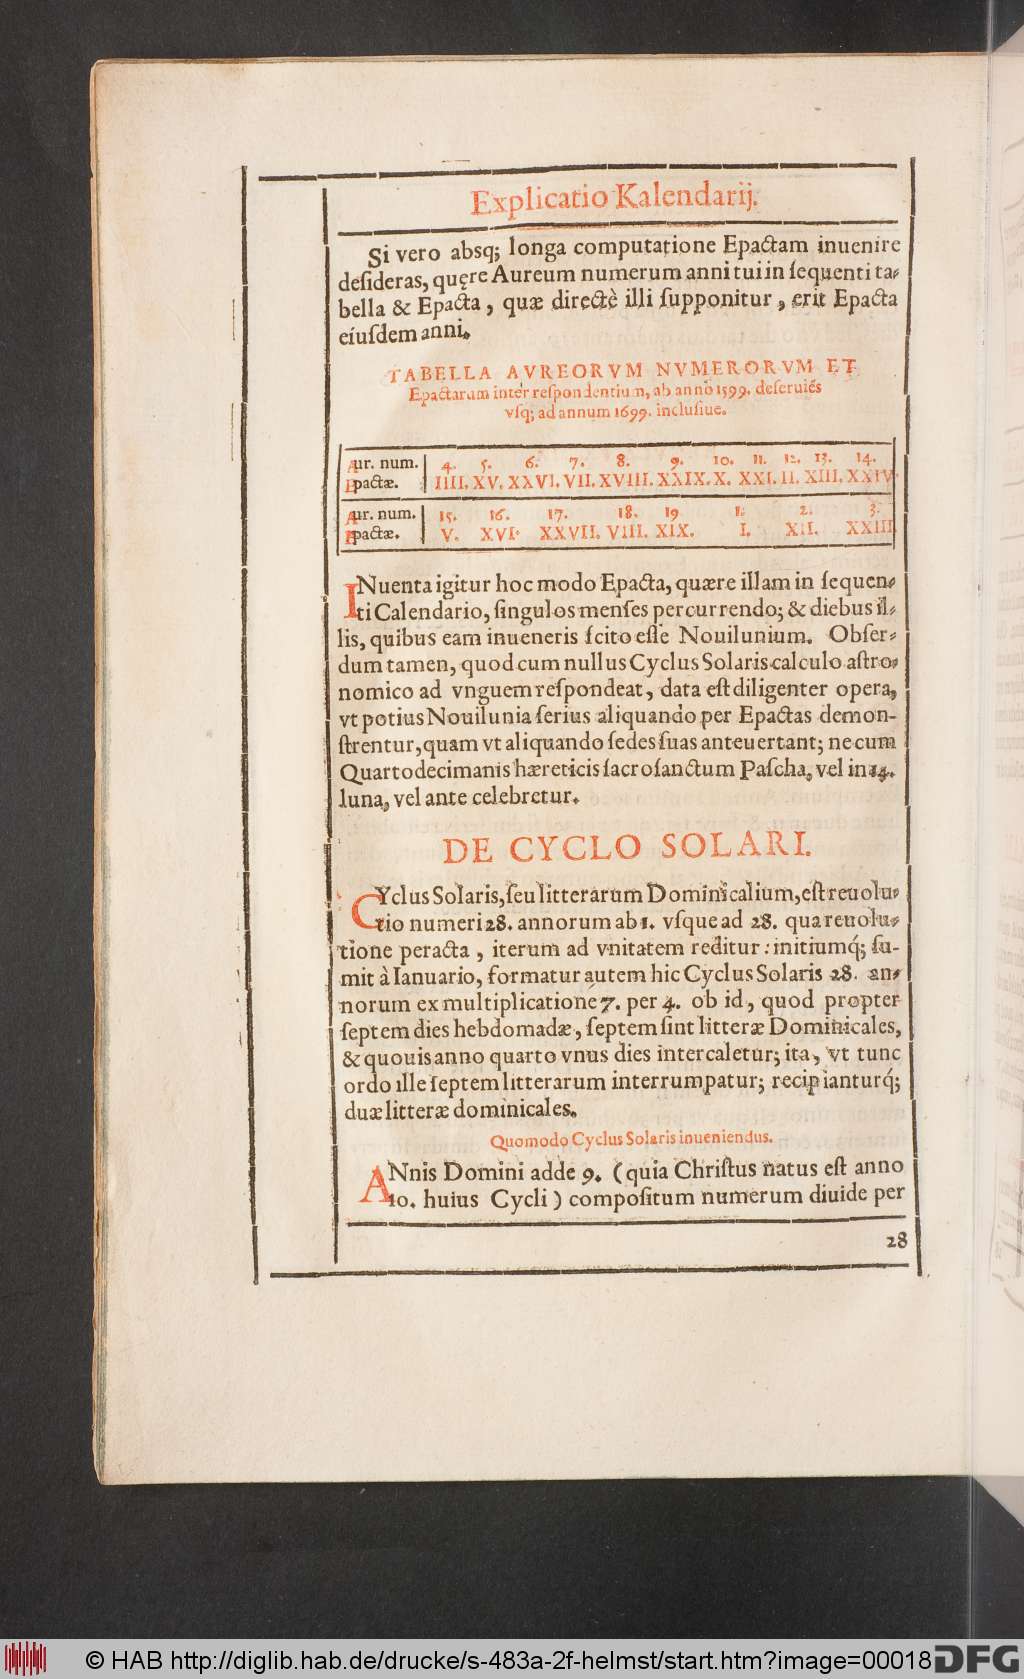 Explicatio Kalendarij.
Si vero absq; longa computatione Epactam inuenire
desideras, quęre Aureum numerum anni tui in sequenti ta-
bella & Epacta, quæ directè illi supponitur, erit Epacta
eiusdem anni.
TABELLA AVREORVM NVMERORVM ET
Epactarum inter respondentium, ab anno 1599. deseruiẽs
vsq; ad annum 1699. inclusiue.
Aur. num. 4. 5. 6. 7. 8. 9. 10. 11. 12. 13. 14.
Epactæ. IIII. XV. XXVI. VII. XVIII. XXIX. X. XXI. II. XIII. XXIV.
Aur. num. 15. 16. 17. 18. 19. 1. 2. 3.
Epactæ. V. XVI. XXVII. VIII. XIX. I. XII. XXIII.
INuenta igitur hoc modo Epacta, quære illam in sequen-
ti Calendario, singulos menses percurrendo; & diebus il-
lis, quibus eam inueneris scito esse Nouilunium. Obser-
dum tamen, quod cum nullus Cyclus Solaris calculo astro-
nomico ad vnguem respondeat, data est diligenter opera,
vt potius Nouilunia serius aliquando per Epactas demon-
strentur, quam vt aliquando sedes suas anteuertant; ne cum
Quartodecimanis hæreticis sacrosanctum Pascha, vel in 14.
luna, vel ante celebretur.
DE CYCLO SOLARI.
CYclus Solaris, seu litterarum Dominicalium, est reuolu-
tio numeri 28. annorum ab 1. vsque ad 28. qua reuolu-
tione peracta, iterum ad vnitatem reditur: initiumq́; su-
mit à Ianuario, formatur autem hic Cyclus Solaris 28. an-
norum ex multiplicatione 7. per 4. ob id, quod propter
septem dies hebdomadæ, septem sint litteræ Dominicales,
& quouis anno quarto vnus dies intercaletur; ita, vt tunc
ordo ille septem litterarum interrumpatur; recipianturq́;
duæ litteræ dominicales.
Quomodo Cyclus Solaris inueniendus.
ANnis Domini adde 9. (quia Christus natus est anno
10. huius Cycli) compositum numerum diuide per
28
© HAB http://diglib.hab.de/drucke/s-483a-2f-helmst/start.htm?image=00018
DFG